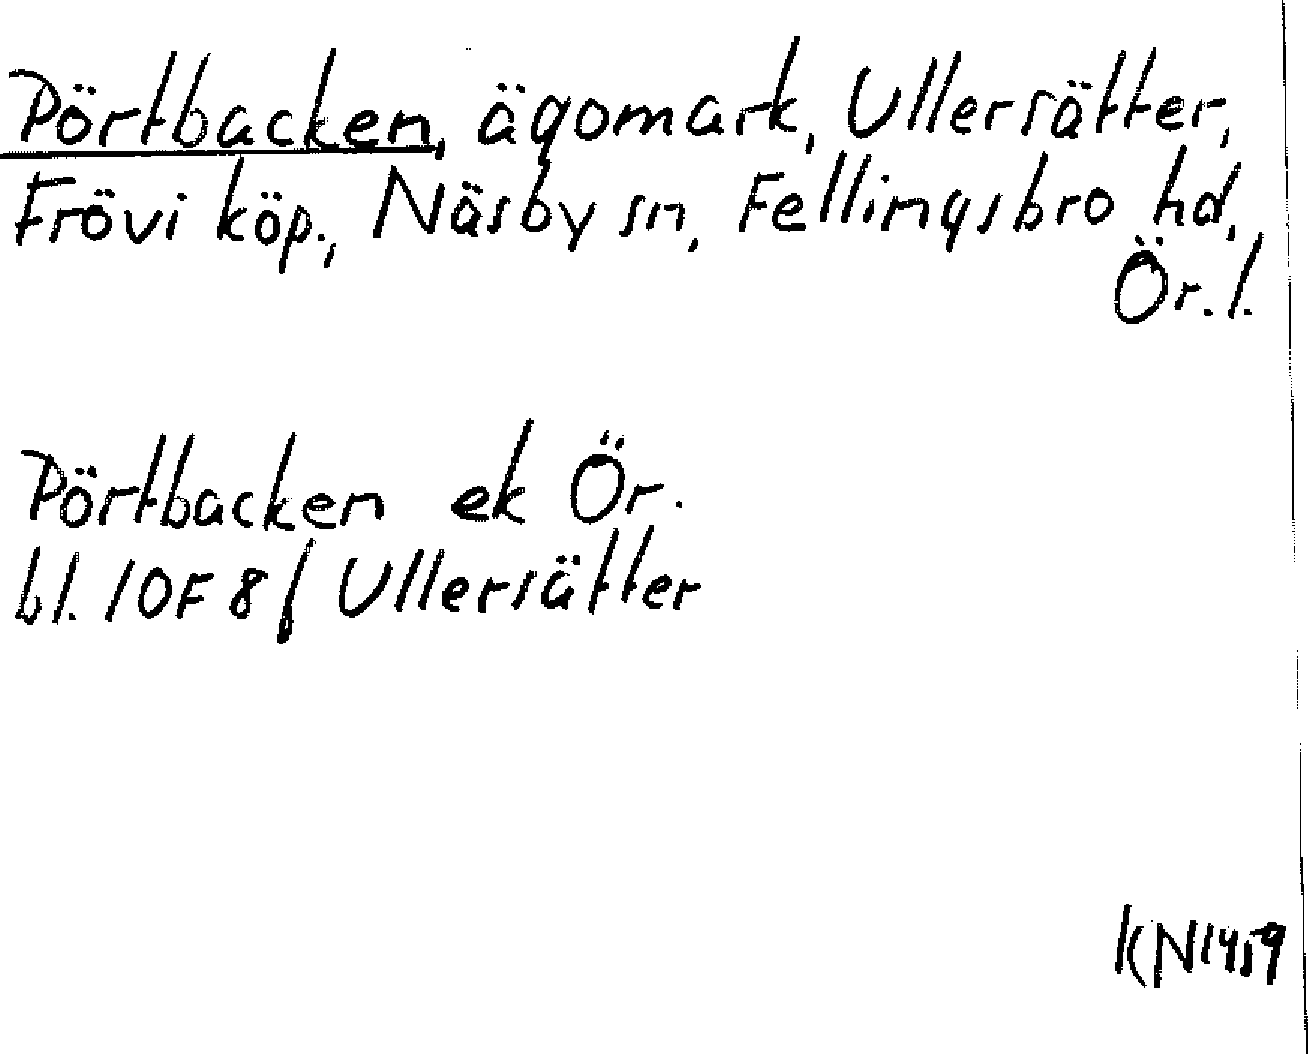 Pörtbacken, ägomark, Ullersätter,
Frövi köp., Näsby sn, Fellingsbro hd,
Ör. l.
Pörtbacken ek Ör.
bl. 10F 8f Ullersätter
KN1459